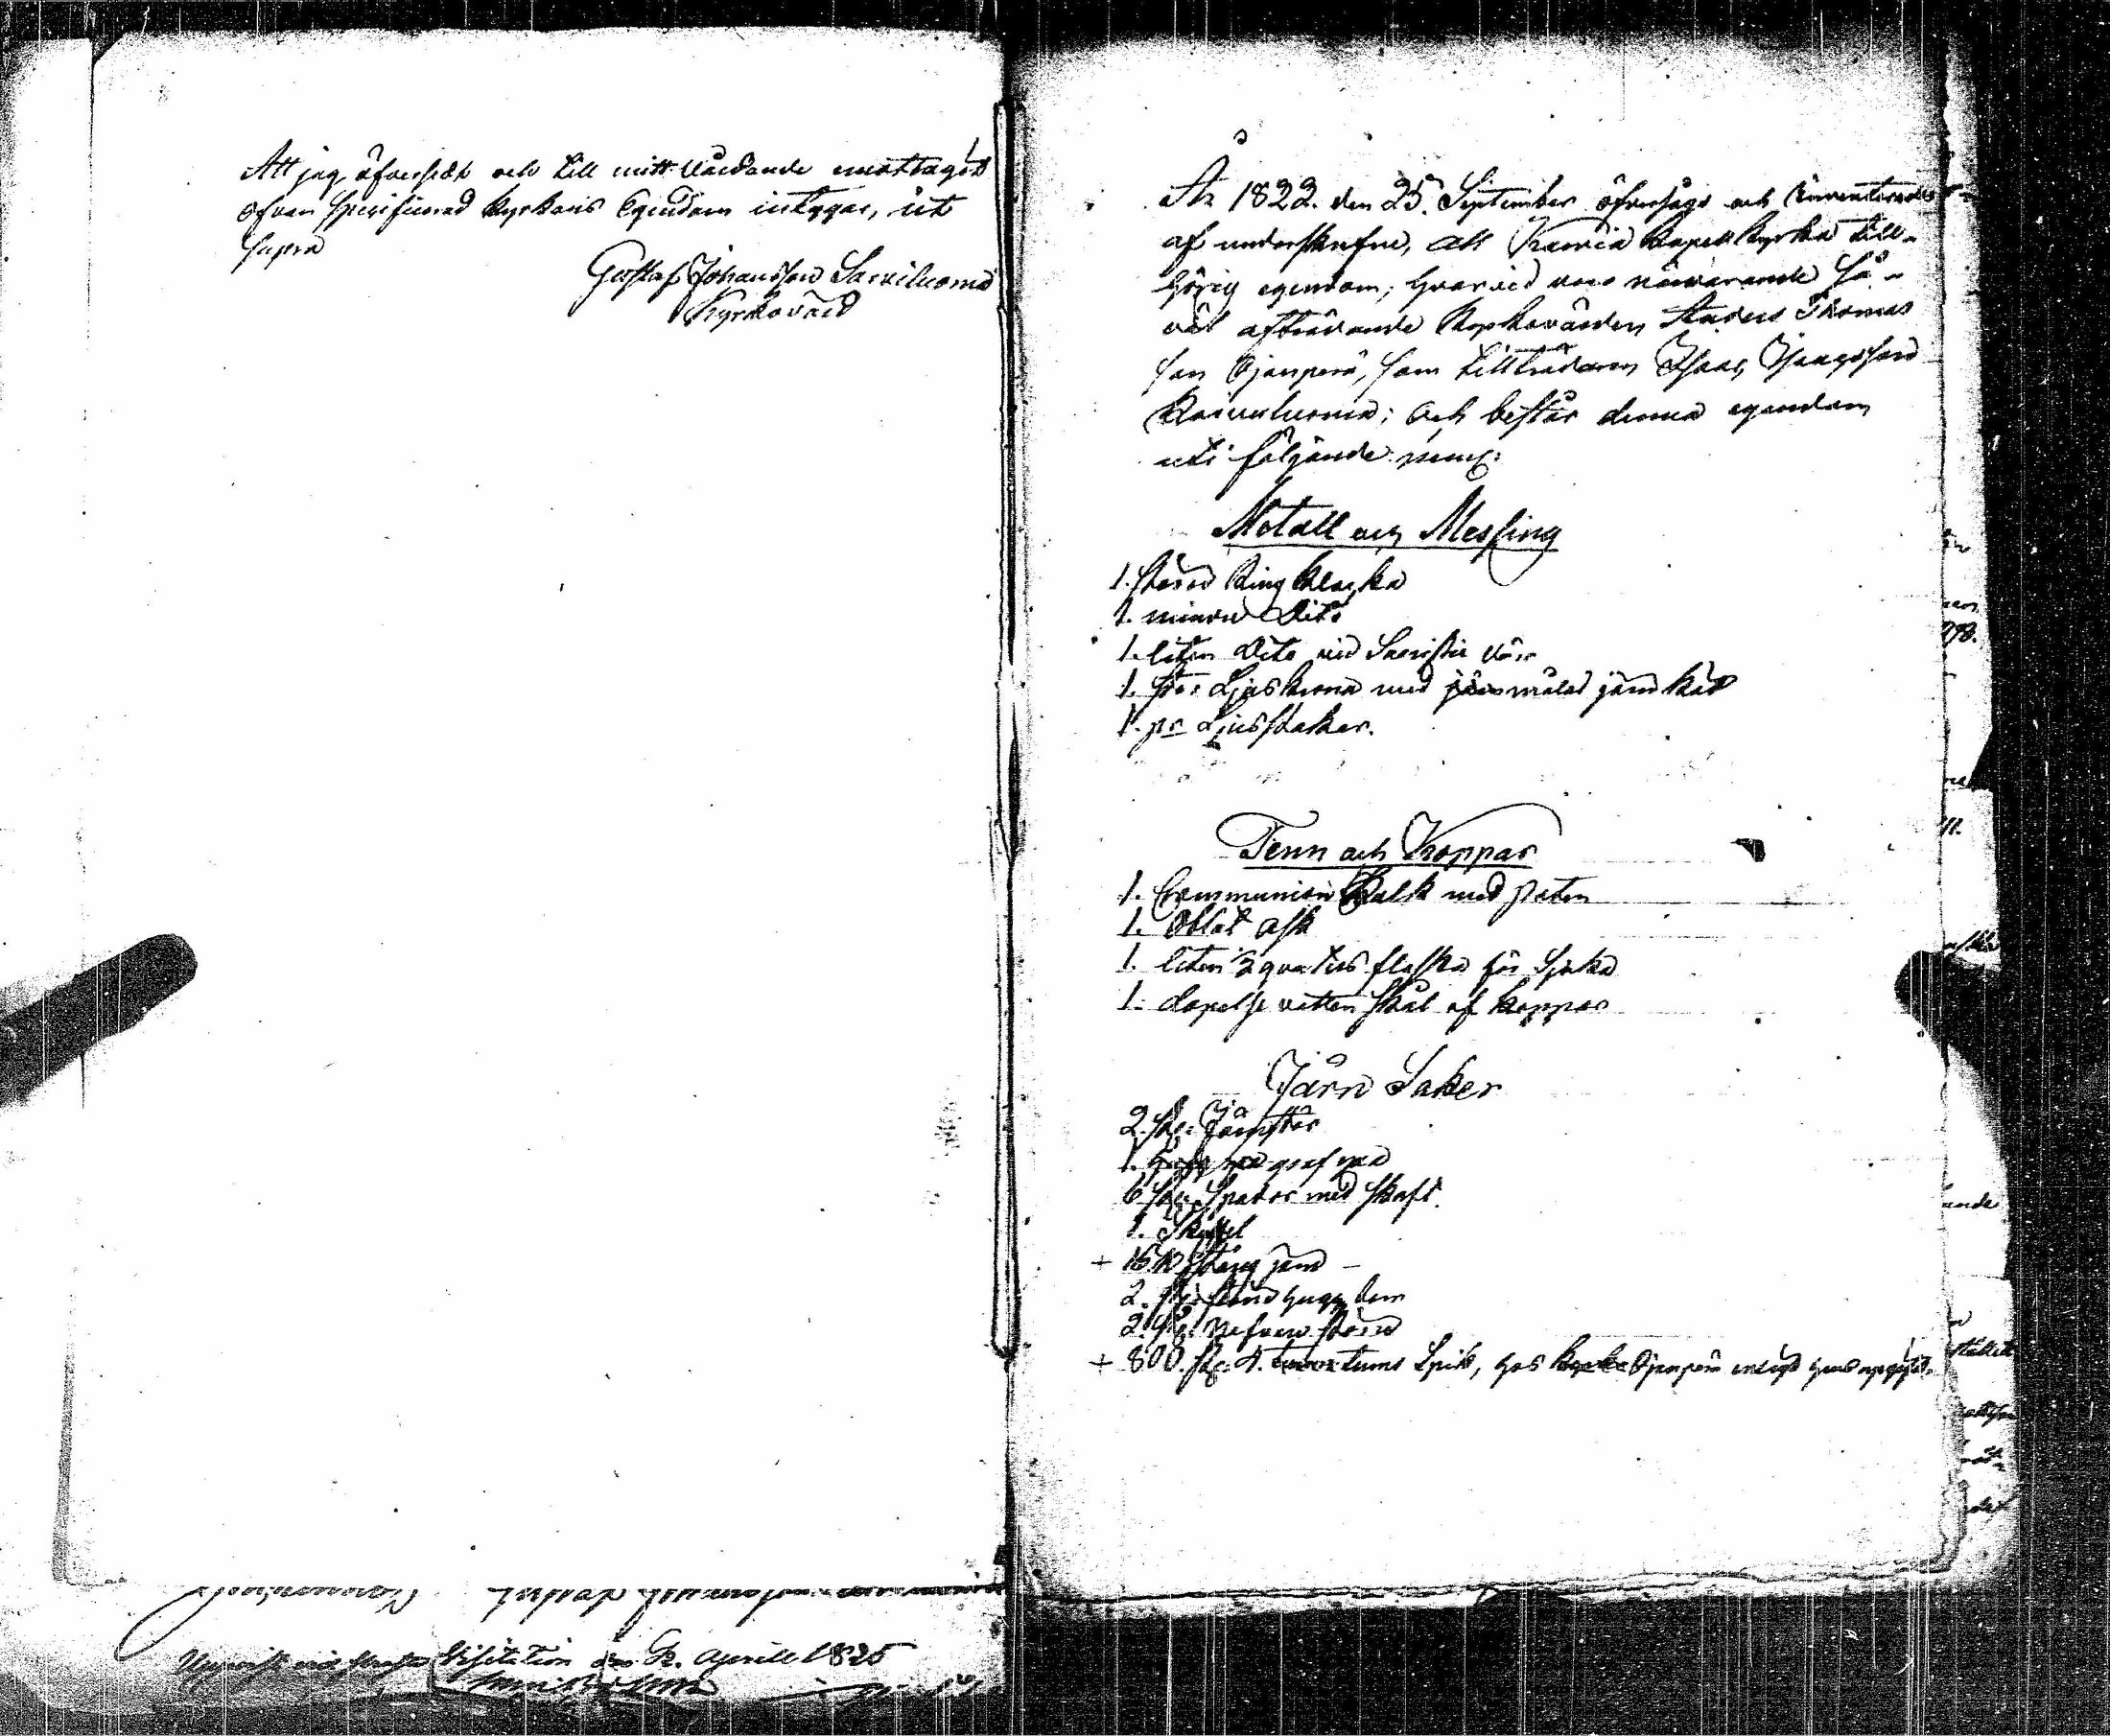 Att jag öfversedt och till mitt vårdande emottagit
ofvan specificerad kyrkans Egendom intygar, ut
supra
Gustaf Johansson Sarviluoma
Kyrkovärd
Uppvist vid Visitation den 12. Aprill 1825
År 1822. den 25. September öfversågs och Inventerades
af underskrefne, all Karvia Kapell kyrka till-
hörig egendom; hvarvid voro närvarande så-
väl afträdande Kyrkovärden Anders Thomas
son Ojanperä, som tillträdaren Isaac Isaacsson
Raivaluoma; och består denna egendom
uti följande neml:
Metall och Messing
1. större Ring klocka
1. mindre dito
1. liten dito vid Sacristie dörr
1. stor Ljuskrona med målad jern käd
1. pr Ljusstakar.
Tenn och Koppar
1. Communion Kalk med paten
1. Oblat ask
1. liten 1/2 qvarters flaska för Sjuka
1. dopelse vatten skål af koppar
Järn Saker
2. st: Järnstör
1.
6 st: Spador med skaft.
1. Skyffel
+ 15 ℔ stång jern –
2. st:
2. st: Nafvare större
+ 800. st: 4. tums Spik, hos Ojanperä enligt hans uppgift.